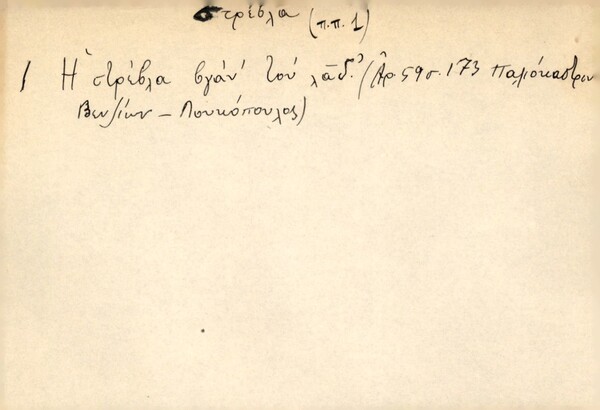 στρέβλα (π.π. 1)
1 Ἡ στρέβλα βγάν' τοὺ λάδ' (Ἀρ. 59 σ. 173 Παλιόκαστρον
Βεντζίων – Λουκόπουλος)